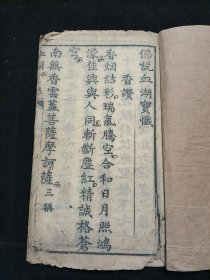 佛説血湖寶懺
香讚
香烟結彩瑞氣騰空合和日月照鴻
濛佳興與人同斬斷塵紅精誠格蒼
穹
南無香雲蓋菩薩摩訶薩三稱